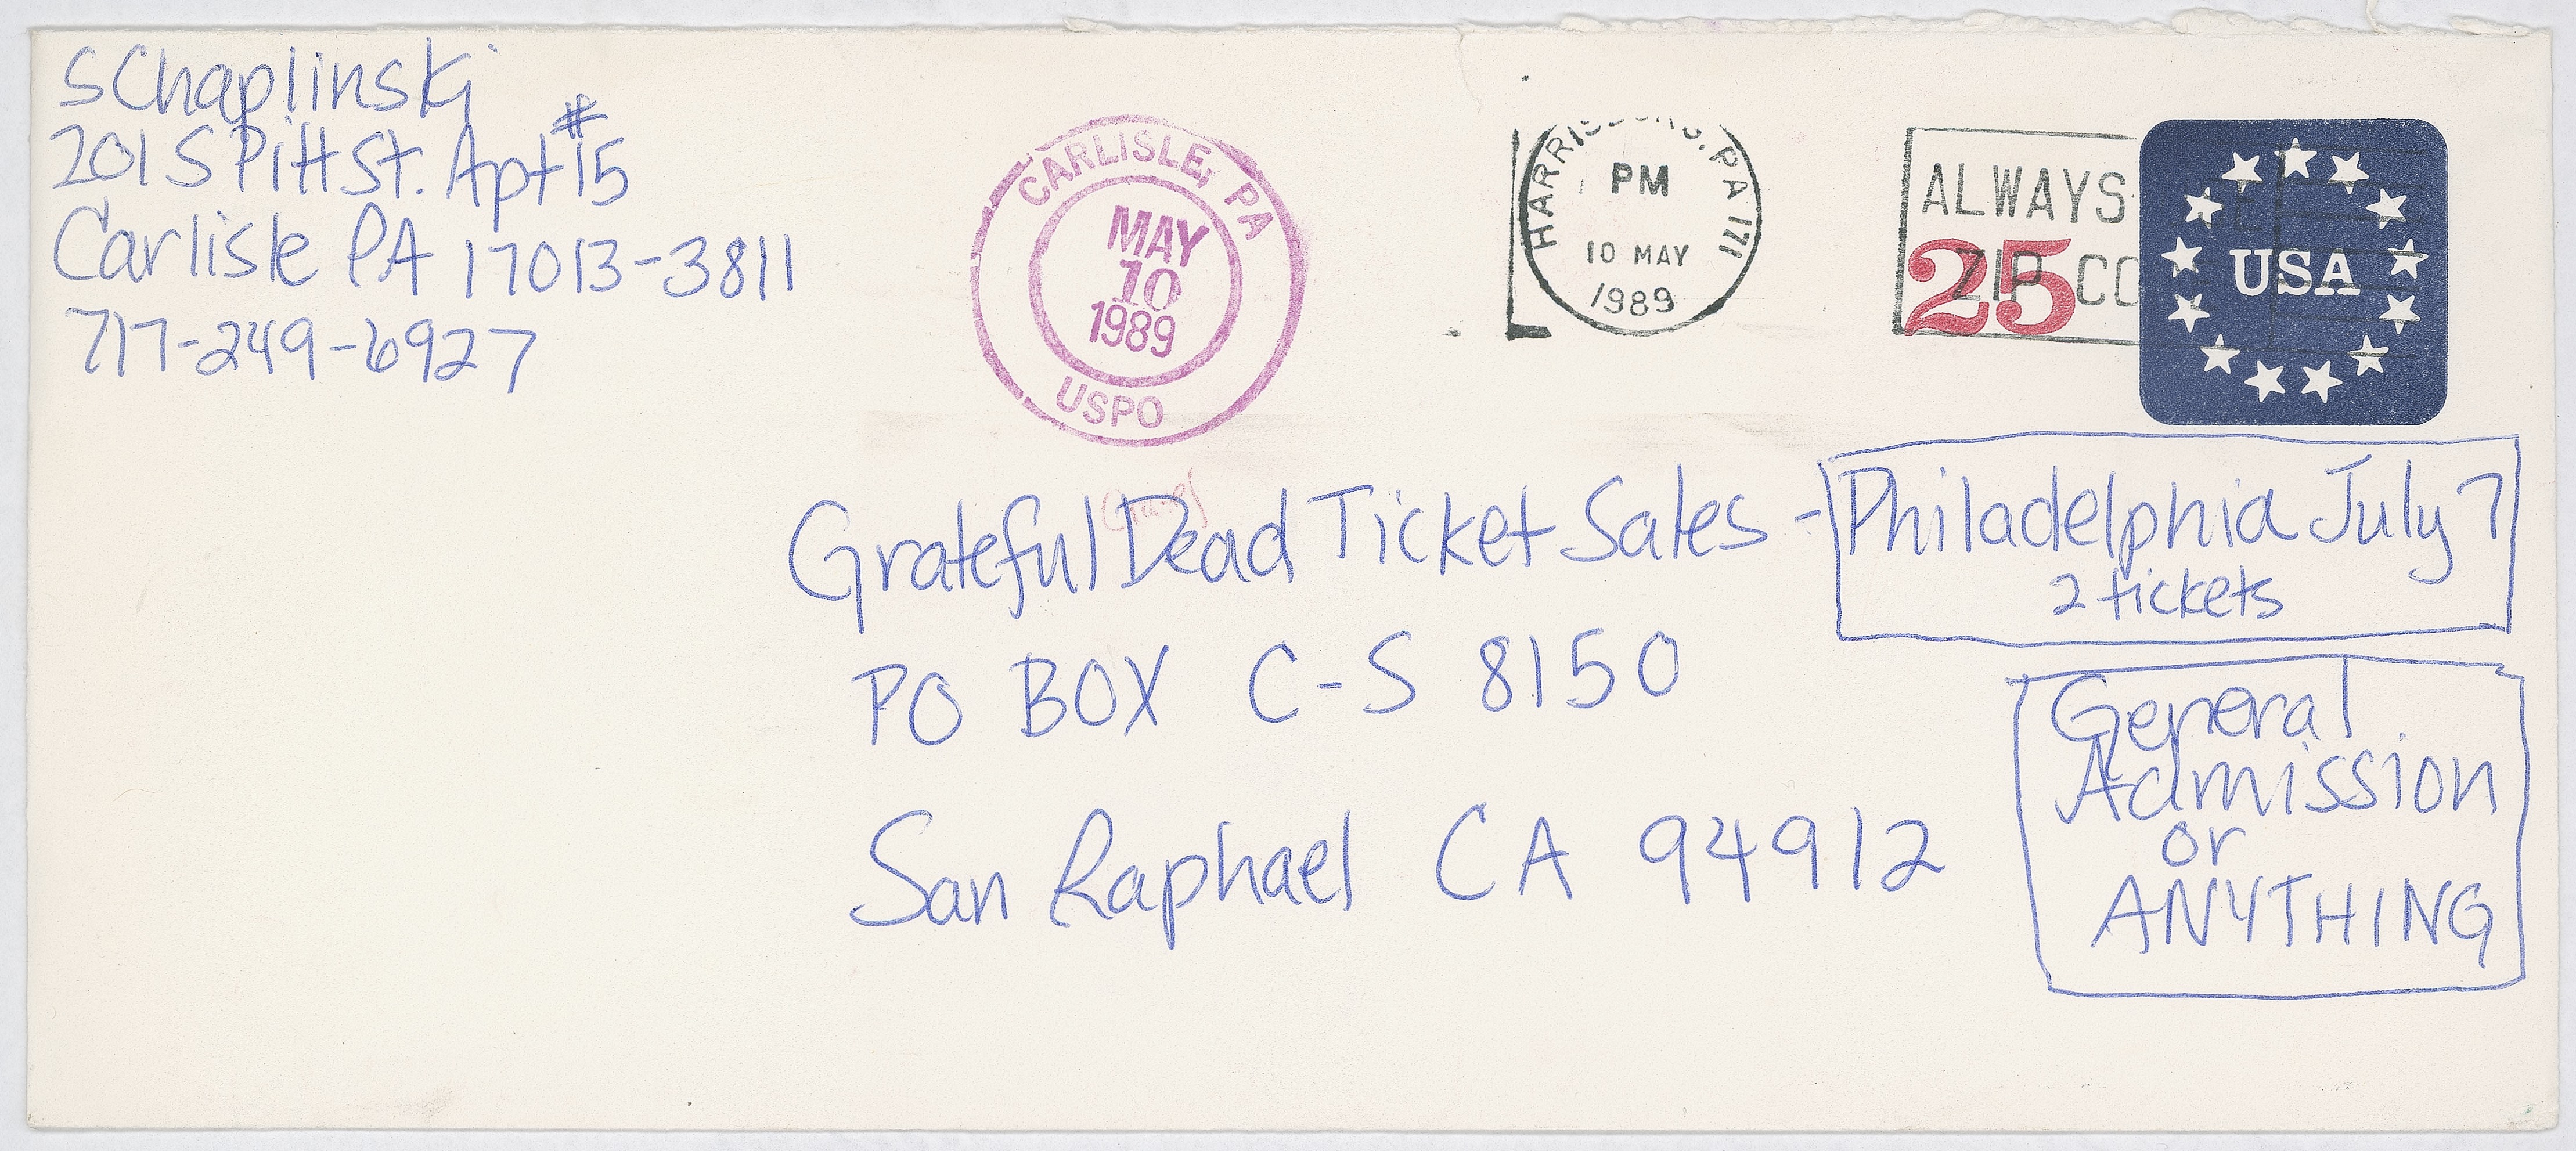 SChaplinski
201 S Pitt St. Apt #15
Carlisle PA 17013-3811
717-249-6927
CARLISLE, PA
MAY
10
1989
USPO
HARRISBURG, PA 171
PM
10 MAY
1989
ALWAYS
ZIP CO
25
USA
Grateful Dead Ticket Sales - Philadelphia July 7
2 tickets
PO BOX C-S 8150
San Raphael CA 94912
General
Admission
or
ANYTHING